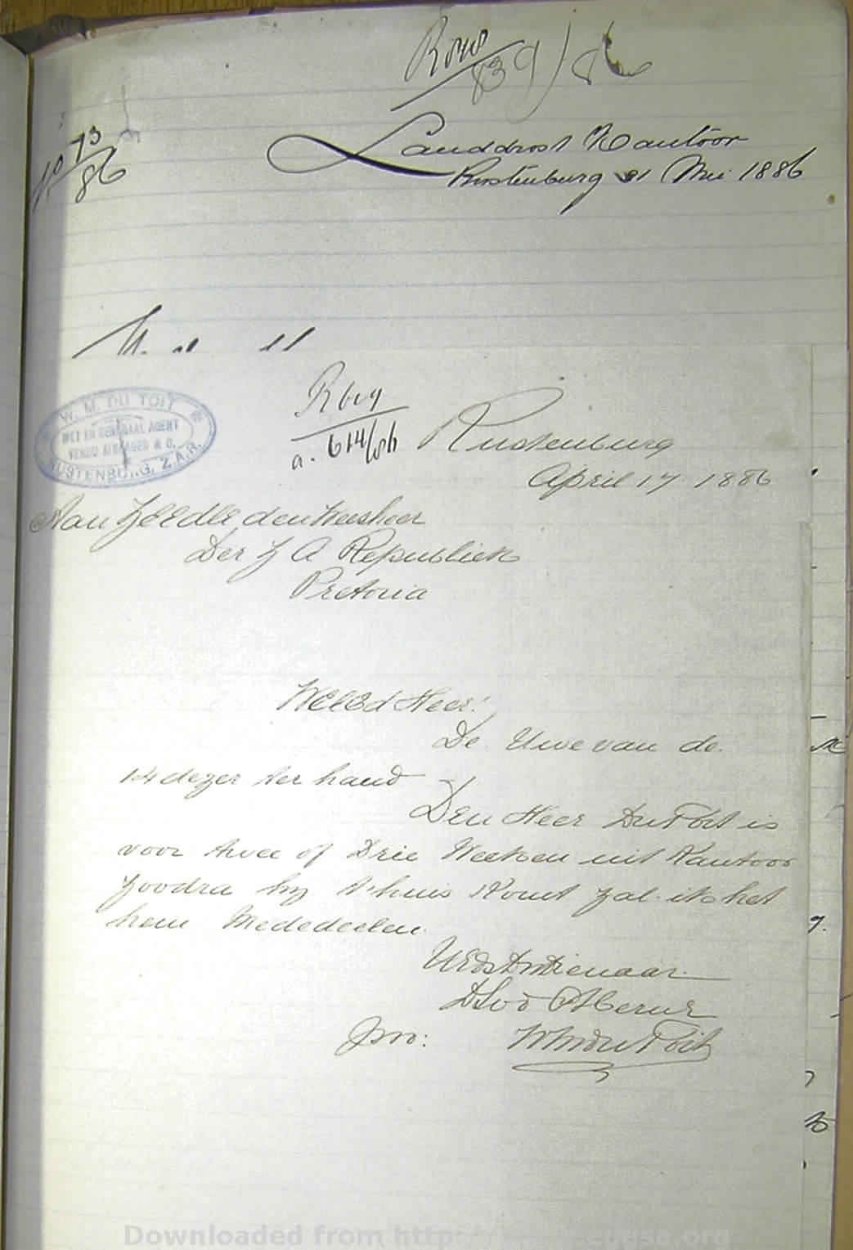 839/86
73/86
Landdrost Kantoor
Rustenburg 31 Mei 1886
R 619
a. 614/86
Rustenburg
April 17 1886
W. M. DU TOIT
WET EN GENERAAL AGENT
RUSTENBURG, Z.A.R.
Aan ZEEdle den Weesheer
Der Z A Republiek
Pretoria
WelEd Heer!
De Uwe van de
14 dezer ter hand
Den Heer Du Toit is
voor twee of Drie Weeken uit Kantoor
Zoodra hy t'huis Komt zal ik het
hem Mededeelen.
UEds Dnt Dienaar
pro: WM du Toit
Downloaded from http